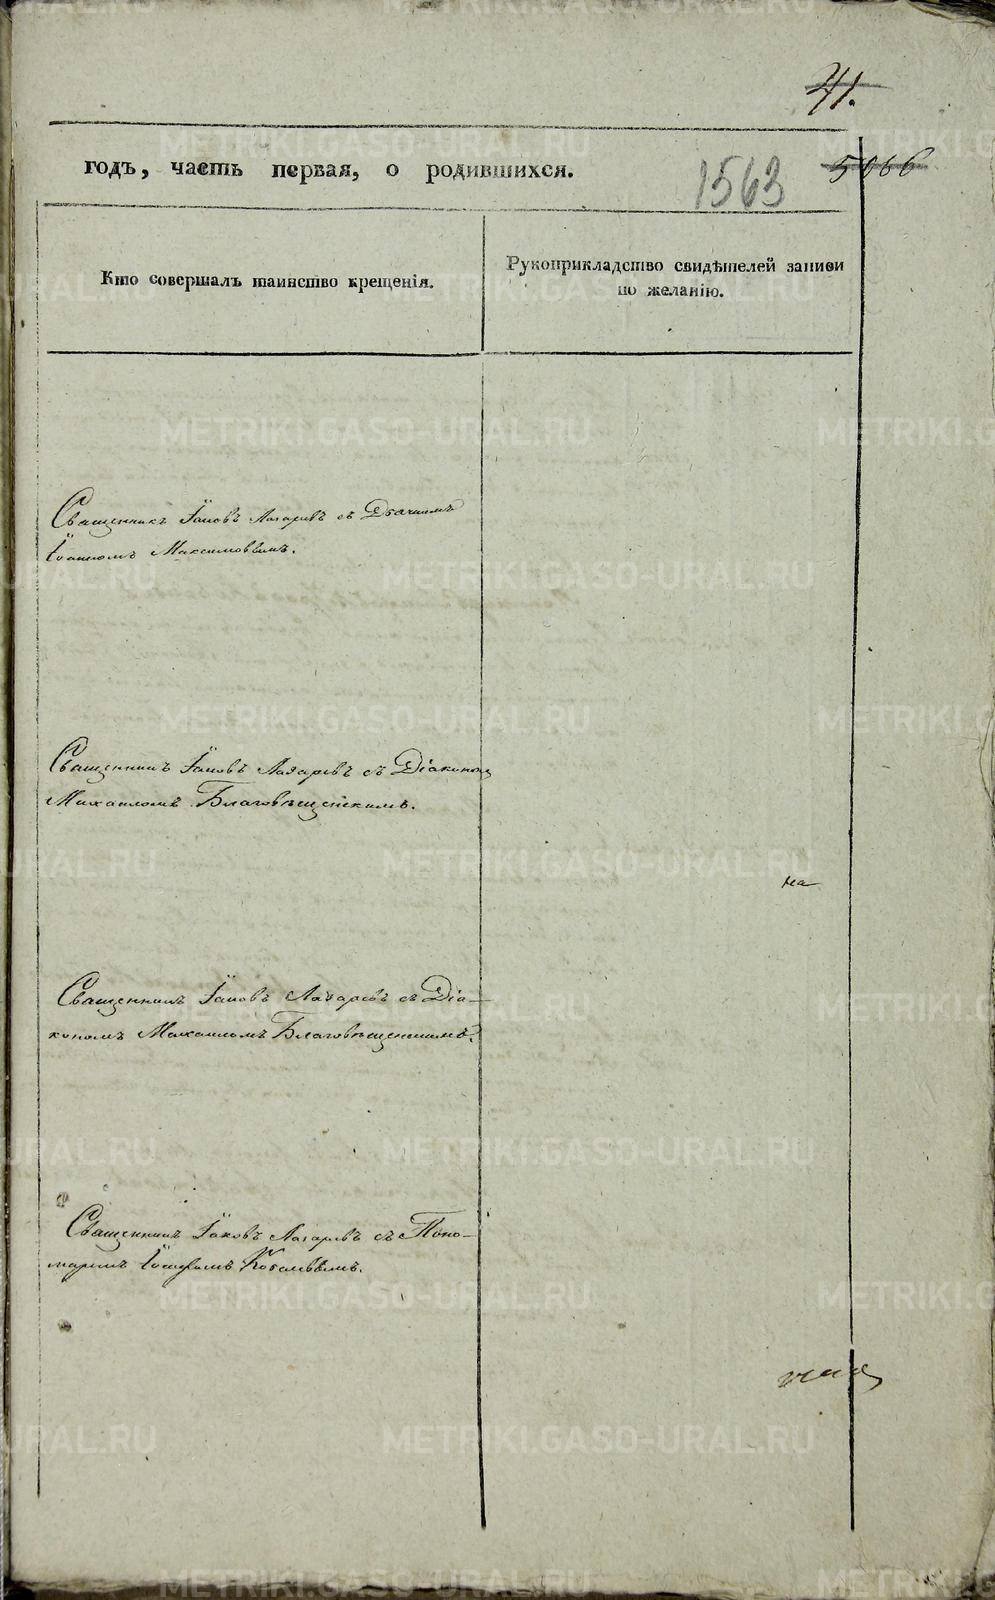 41.
годъ, часть первая, о родившихся.
1563
5066
Кто совершалъ таинство крещенія.
Рукоприкладство свидѣтелей записи
по желанію.
Священникъ Іаковъ Лазаревъ съ Дьячкомъ
Іоанномъ Максимовымъ.
Священникъ Іаковъ Лазаревъ съ Діакономъ
Михаиломъ Благовѣщенскимъ.
на
Священникъ Іаковъ Лазаревъ съ Діа-
кономъ Михаиломъ Благовѣщенскимъ.
Священникъ Іаковъ Лазаревъ съ Поно-
маремъ Іосифомъ
METRIKI.GASO-URAL.RU